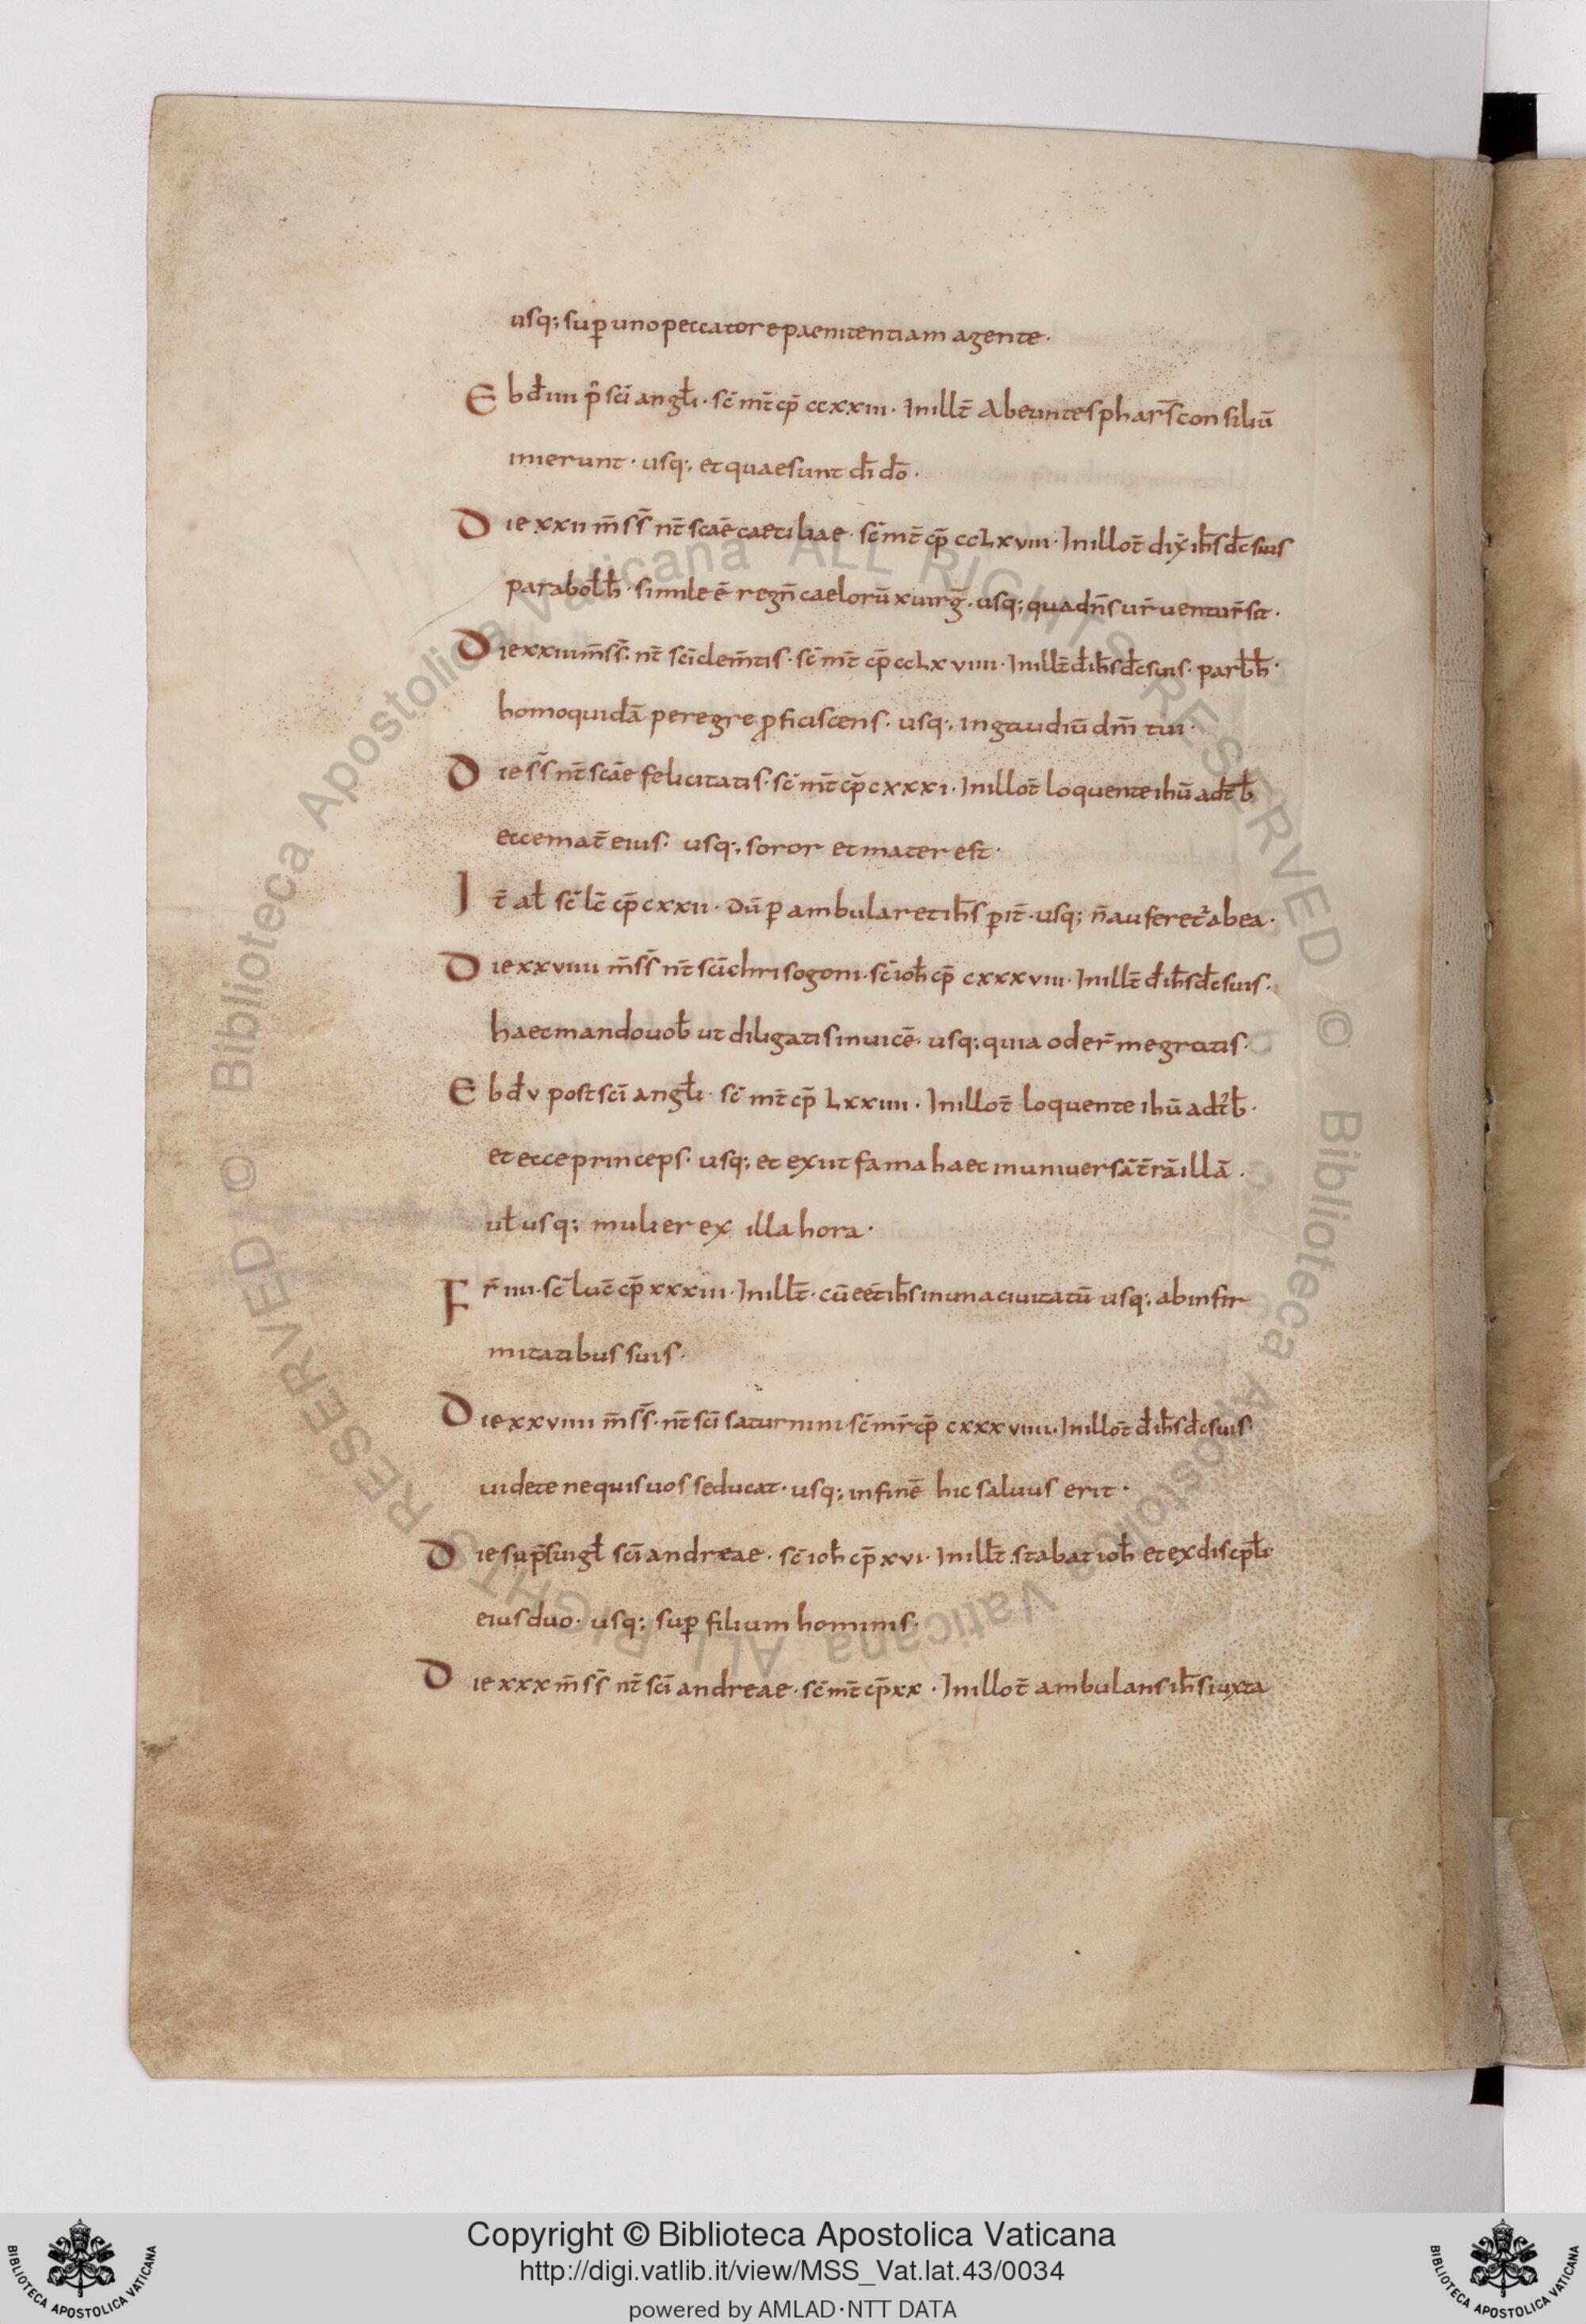 usq; sup̱ uno peccatore paenitentiam agente·
Ebd̄ iiii p̄ sc̄i angl̄i· sc̄ mt̄ cp̄ ccxxiii· In illt̄ Abeuntes phars̄ consiliū
inierunt· usq; et quae sunt dī dō·
Die xxii m̄ s̄s̄ nt̄ scāe caeciliae· sc̄ mt̄ cp̄ ccLxviii· In illot̄ dix̄ ih̄s dc̄ suis
parabol̄h̄· simile ē regn̄ caelorū x uirḡ· usq; quadn̄s ur̄ uentur̄ sit·
Die xxiii m̄ s̄s̄· nt̄ sc̄i clem̄tis· sc̄ mt̄ cp̄ ccLxviiii· In illt̄ d̄ ih̄s dc̄ suis· parb̄h̄·
homo quidā peregre p̱ficiscens· usq; in gaudiū dn̄i tui·
Die s̄s̄ nt̄ scāe felicitatis· sc̄ mt̄ cp̄ cxxxi· In illot̄ loquente ihū adt̄b̄
ecce mat̄ eius· usq; soror et mater est·
It̄ al̄ sc̄ lc̄ cp̄ cxxii· dū p̱ambularet ih̄s p̱ it̄· usq; n̄ auferet̄ ab ea·
Die xxviiii m̄ s̄s̄ nt̄ sc̄i chrisogoni· sc̄ ioh̄ cp̄ cxxxviii· In illt̄ d̄ ih̄s dc̄ suis·
haec mando uob̄ ut diligatis inuicē· usq; quia oder̄ me gratis·
Ebd̄ v post sc̄i angl̄i· sc̄ mt̄ cp̄ Lxxiiii· In illot̄ loquente ihū adt̄b̄·
et ecce princeps· usq; et exiit fama haec in uniuersā t̄rā illā·
ul̄ usq; mulier ex illa hora·
Fr̄ iiii· sc̄ luc̄ cp̄ xxxiii· In illt̄· cū eēt ih̄s in una ciuitatū usq; ab infir
mitatibus suis·
Die xxviiii m̄ s̄s̄· nt̄ sc̄i saturnini sc̄ mr̄ cp̄ cxxxviiii· In illot̄ d̄ ih̄s dc̄ suis·
uidete nequis uos seducat· usq; in finē hic saluus erit·
Die sup̄s uigl̄ sc̄i andreae· sc̄ ioh̄ cp̄ xvi· In illt̄ stabat ioh̄ et ex discpl̄i
eius duo· usq; sup̱ filium hominis·
Die xxx m̄ s̄s̄ nt̄ sc̄i andreae· sc̄ mt̄ cp̄ xx· In illot̄ ambulans ih̄s iuxta
Copyright © Biblioteca Apostolica Vaticana
http://digi.vatlib.it/view/MSS_Vat.lat.43/0034
powered by AMLAD·NTT DATA
BIBLIOTECA APOSTOLICA VATICANA
BIBLIOTECA APOSTOLICA VATICANA
© Biblioteca Apostolica Vaticana ALL RIGHTS RESERVED
© Biblioteca Apostolica Vaticana ALL RIGHTS RESERVED